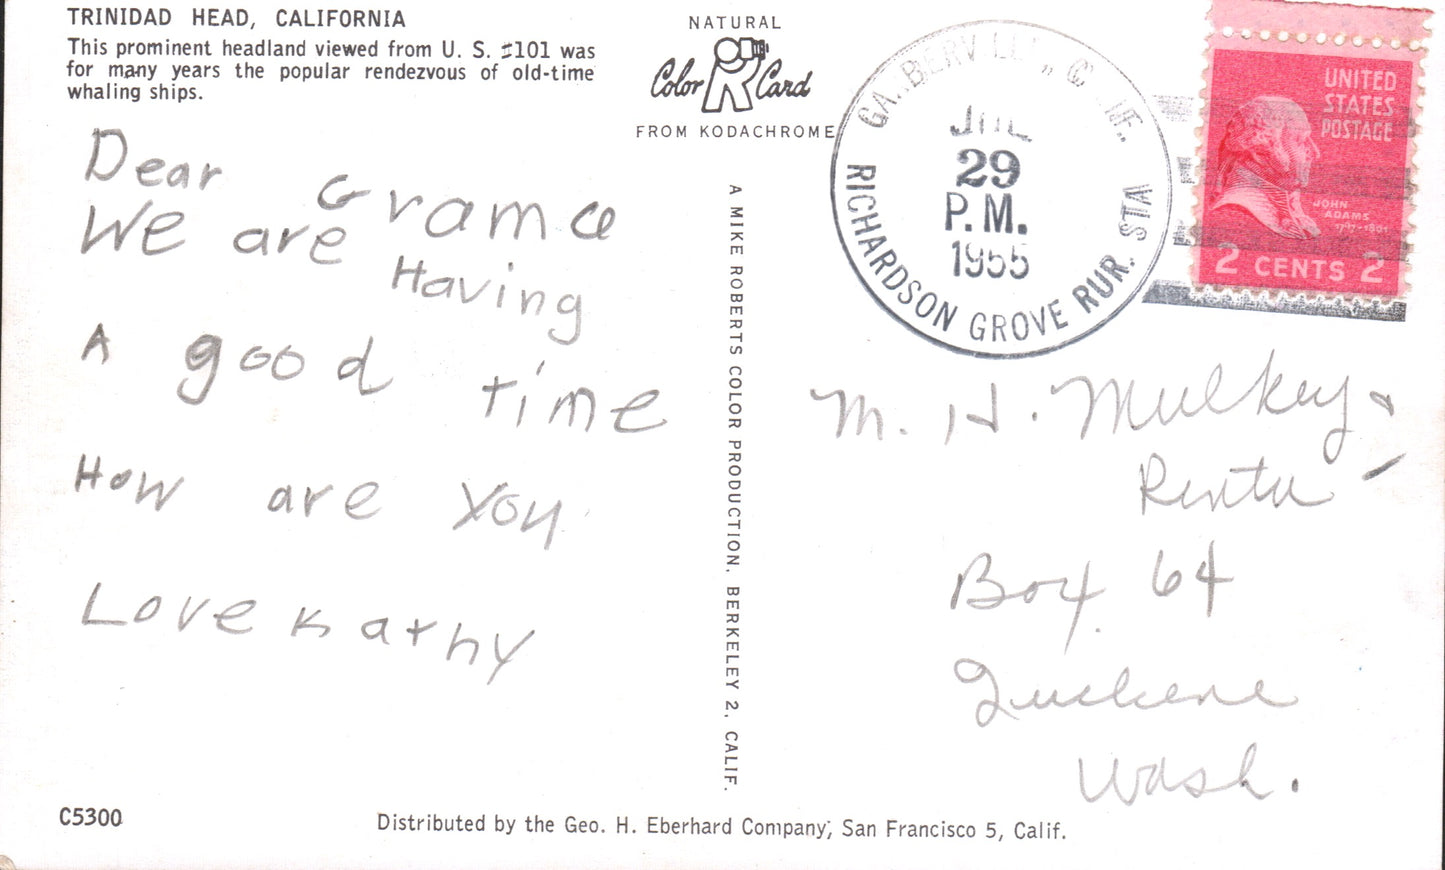 TRINIDAD HEAD, CALIFORNIA
This prominent headland viewed from U. S. #101 was
for many years the popular rendezvous of old-time
whaling ships.
Dear Grama
We are Having
A good time
How are you
Love Kathy
C5300
NATURAL
Color Card
FROM KODACHROME
A MIKE ROBERTS COLOR PRODUCTION, BERKELEY 2, CALIF.
Distributed by the Geo. H. Eberhard Company, San Francisco 5, Calif.
JUL
29
P.M.
1955
RICHARDSON GROVE RUR. STA
UNITED
STATES
POSTAGE
JOHN
ADAMS
1797-1801
2 CENTS 2
M. H. Mulkey &
Box 64
Wash.